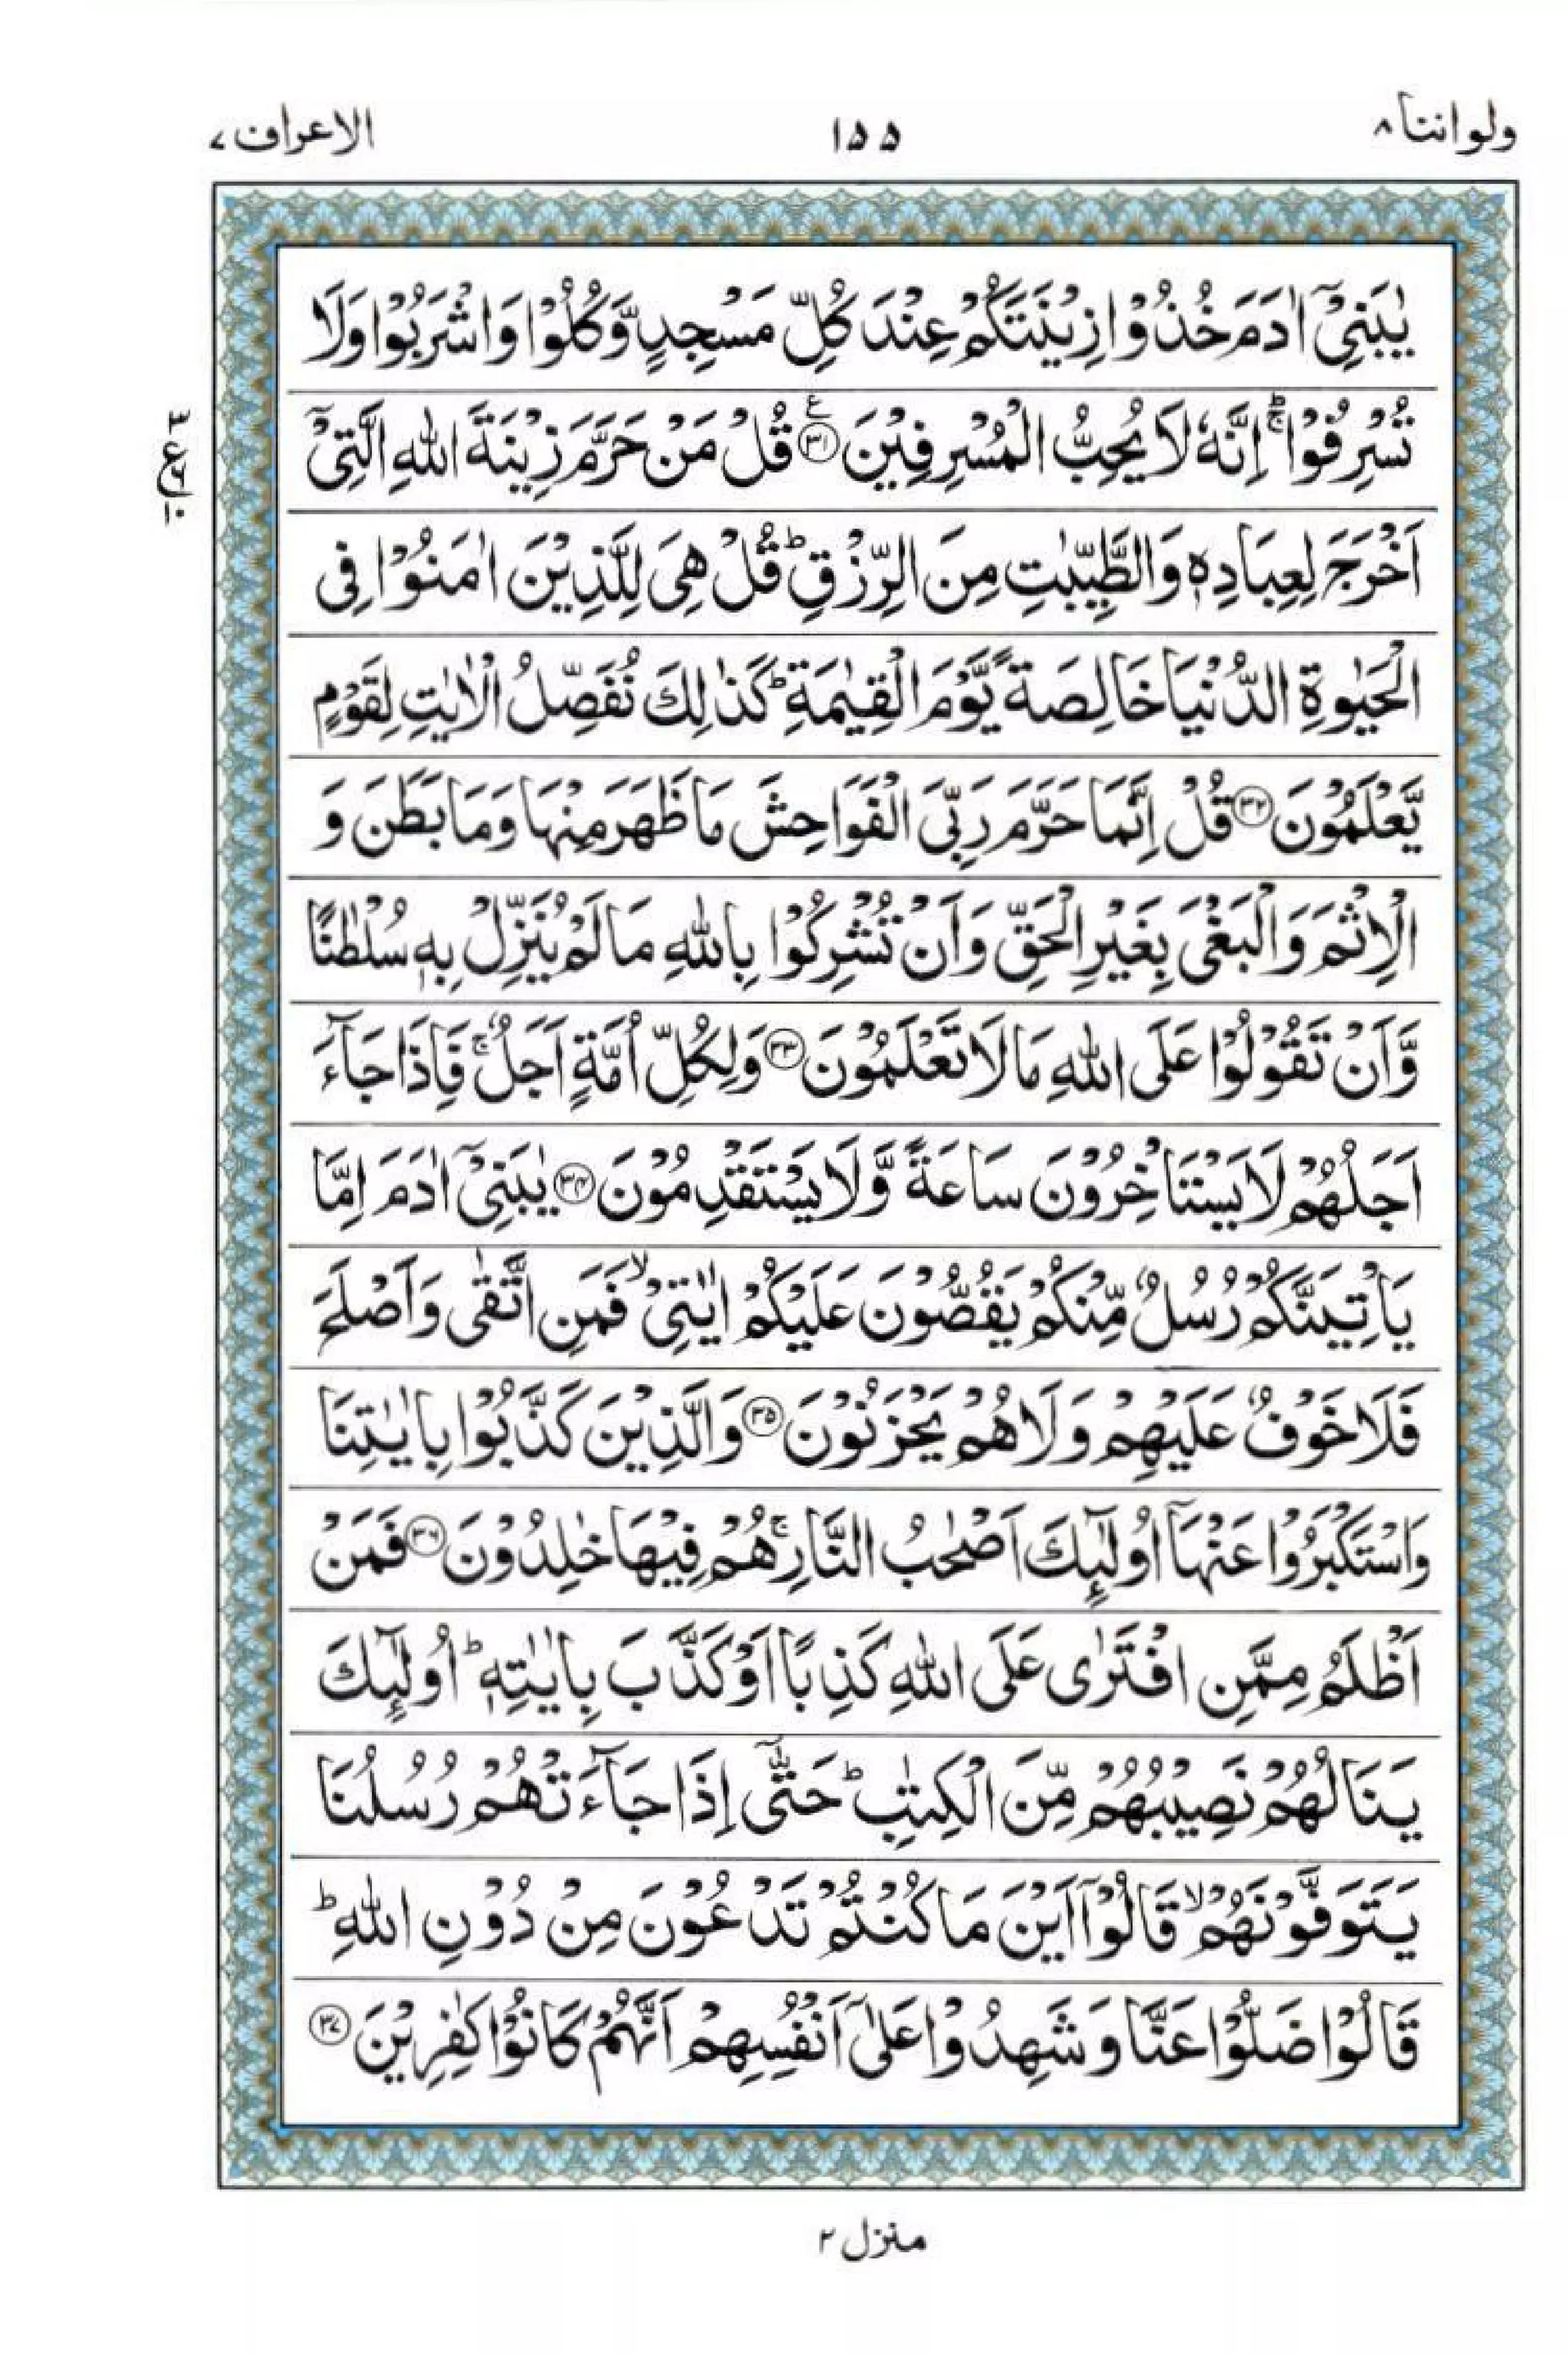 ولواننا ۸
۱۵۵
الاعراف ۷
يٰبَنِيْۤ اٰدَمَ خُذُوْا زِيْنَتَكُمْ عِنْدَ كُلِّ مَسْجِدٍ وَّكُلُوْا وَاشْرَبُوْا وَلَا
تُسْرِفُوْا ۚؕ اِنَّهٗ لَا يُحِبُّ الْمُسْرِفِيْنَ ﴿۳۱﴾ ع قُلْ مَنْ حَرَّمَ زِيْنَةَ اللّٰهِ الَّتِيْۤ
اَخْرَجَ لِعِبَادِهٖ وَالطَّيِّبٰتِ مِنَ الرِّزْقِ ؕ قُلْ هِيَ لِلَّذِيْنَ اٰمَنُوْا فِي
الْحَيٰوةِ الدُّنْيَا خَالِصَةً يَّوْمَ الْقِيٰمَةِ ؕ كَذٰلِكَ نُفَصِّلُ الْاٰيٰتِ لِقَوْمٍ
يَّعْلَمُوْنَ ﴿۳۲﴾ قُلْ اِنَّمَا حَرَّمَ رَبِّيَ الْفَوَاحِشَ مَا ظَهَرَ مِنْهَا وَمَا بَطَنَ وَ
الْاِثْمَ وَالْبَغْيَ بِغَيْرِ الْحَقِّ وَاَنْ تُشْرِكُوْا بِاللّٰهِ مَا لَمْ يُنَزِّلْ بِهٖ سُلْطٰنًا
وَّاَنْ تَقُوْلُوْا عَلَى اللّٰهِ مَا لَا تَعْلَمُوْنَ ﴿۳۳﴾ وَلِكُلِّ اُمَّةٍ اَجَلٌ ۚ فَاِذَا جَآءَ
اَجَلُهُمْ لَا يَسْتَاْخِرُوْنَ سَاعَةً وَّلَا يَسْتَقْدِمُوْنَ ﴿۳۴﴾ يٰبَنِيْۤ اٰدَمَ اِمَّا
يَاْتِيَنَّكُمْ رُسُلٌ مِّنْكُمْ يَقُصُّوْنَ عَلَيْكُمْ اٰيٰتِيْ ۙ فَمَنِ اتَّقٰى وَاَصْلَحَ
فَلَا خَوْفٌ عَلَيْهِمْ وَلَا هُمْ يَحْزَنُوْنَ ﴿۳۵﴾ وَالَّذِيْنَ كَذَّبُوْا بِاٰيٰتِنَا
وَاسْتَكْبَرُوْا عَنْهَاۤ اُولٰٓئِكَ اَصْحٰبُ النَّارِ ۚ هُمْ فِيْهَا خٰلِدُوْنَ ﴿۳۶﴾ فَمَنْ
اَظْلَمُ مِمَّنِ افْتَرٰى عَلَى اللّٰهِ كَذِبًا اَوْ كَذَّبَ بِاٰيٰتِهٖ ؕ اُولٰٓئِكَ
يَنَالُهُمْ نَصِيْبُهُمْ مِّنَ الْكِتٰبِ ؕ حَتّٰۤى اِذَا جَآءَتْهُمْ رُسُلُنَا
يَتَوَفَّوْنَهُمْ ۙ قَالُوْۤا اَيْنَ مَا كُنْتُمْ تَدْعُوْنَ مِنْ دُوْنِ اللّٰهِ ؕ
قَالُوْا ضَلُّوْا عَنَّا وَشَهِدُوْا عَلٰۤى اَنْفُسِهِمْ اَنَّهُمْ كَانُوْا كٰفِرِيْنَ ﴿۳۷﴾
۳
ع
۶
۱۰
منزل ۲